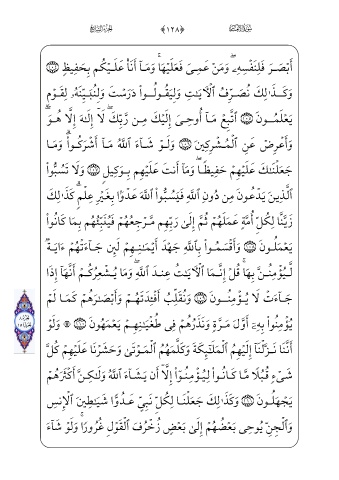 سورة الأنعام ﴿١٢٨﴾ الجزء السابع
أَبْصَرَ فَلِنَفْسِهِۦ ۖ وَمَنْ عَمِىَ فَعَلَيْهَا ۚ وَمَآ أَنَا۠ عَلَيْكُم بِحَفِيظٍ
وَكَذَٰلِكَ نُصَرِّفُ ٱلْءَايَٰتِ وَلِيَقُولُوا۟ دَرَسْتَ وَلِنُبَيِّنَهُۥ لِقَوْمٍ
يَعْلَمُونَ ٱتَّبِعْ مَآ أُوحِىَ إِلَيْكَ مِن رَّبِّكَ ۖ لَآ إِلَٰهَ إِلَّا هُوَ ۖ
وَأَعْرِضْ عَنِ ٱلْمُشْرِكِينَ وَلَوْ شَآءَ ٱللَّهُ مَآ أَشْرَكُوا۟ ۗ وَمَا
جَعَلْنَٰكَ عَلَيْهِمْ حَفِيظًا ۖ وَمَآ أَنتَ عَلَيْهِم بِوَكِيلٍ وَلَا تَسُبُّوا۟
ٱلَّذِينَ يَدْعُونَ مِن دُونِ ٱللَّهِ فَيَسُبُّوا۟ ٱللَّهَ عَدْوًۢا بِغَيْرِ عِلْمٍ ۗ كَذَٰلِكَ
زَيَّنَّا لِكُلِّ أُمَّةٍ عَمَلَهُمْ ثُمَّ إِلَىٰ رَبِّهِم مَّرْجِعُهُمْ فَيُنَبِّئُهُم بِمَا كَانُوا۟
يَعْمَلُونَ وَأَقْسَمُوا۟ بِٱللَّهِ جَهْدَ أَيْمَٰنِهِمْ لَئِن جَآءَتْهُمْ ءَايَةٌ
لَّيُؤْمِنُنَّ بِهَا ۚ قُلْ إِنَّمَا ٱلْءَايَٰتُ عِندَ ٱللَّهِ ۖ وَمَا يُشْعِرُكُمْ أَنَّهَآ إِذَا
جَآءَتْ لَا يُؤْمِنُونَ وَنُقَلِّبُ أَفْـِٔدَتَهُمْ وَأَبْصَٰرَهُمْ كَمَا لَمْ
يُؤْمِنُوا۟ بِهِۦٓ أَوَّلَ مَرَّةٍ وَنَذَرُهُمْ فِى طُغْيَٰنِهِمْ يَعْمَهُونَ ۞ وَلَوْ
أَنَّنَا نَزَّلْنَآ إِلَيْهِمُ ٱلْمَلَٰٓئِكَةَ وَكَلَّمَهُمُ ٱلْمَوْتَىٰ وَحَشَرْنَا عَلَيْهِمْ كُلَّ
شَىْءٍ قُبُلًا مَّا كَانُوا۟ لِيُؤْمِنُوٓا۟ إِلَّآ أَن يَشَآءَ ٱللَّهُ وَلَٰكِنَّ أَكْثَرَهُمْ
يَجْهَلُونَ وَكَذَٰلِكَ جَعَلْنَا لِكُلِّ نَبِىٍّ عَدُوًّا شَيَٰطِينَ ٱلْإِنسِ
وَٱلْجِنِّ يُوحِى بَعْضُهُمْ إِلَىٰ بَعْضٍ زُخْرُفَ ٱلْقَوْلِ غُرُورًا ۚ وَلَوْ شَآءَ